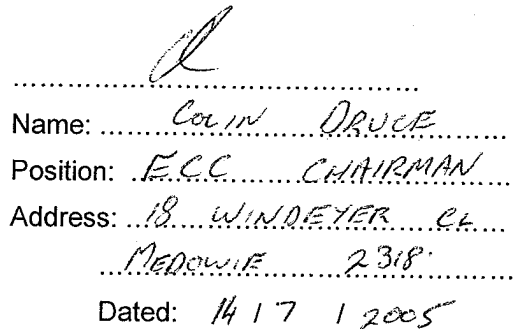 Name: COLIN DRUCE
Position: ECC CHAIRMAN
Address: 18 WINDEYER CL
MEDOWIE 2318
Dated: 14 / 7 / 2005